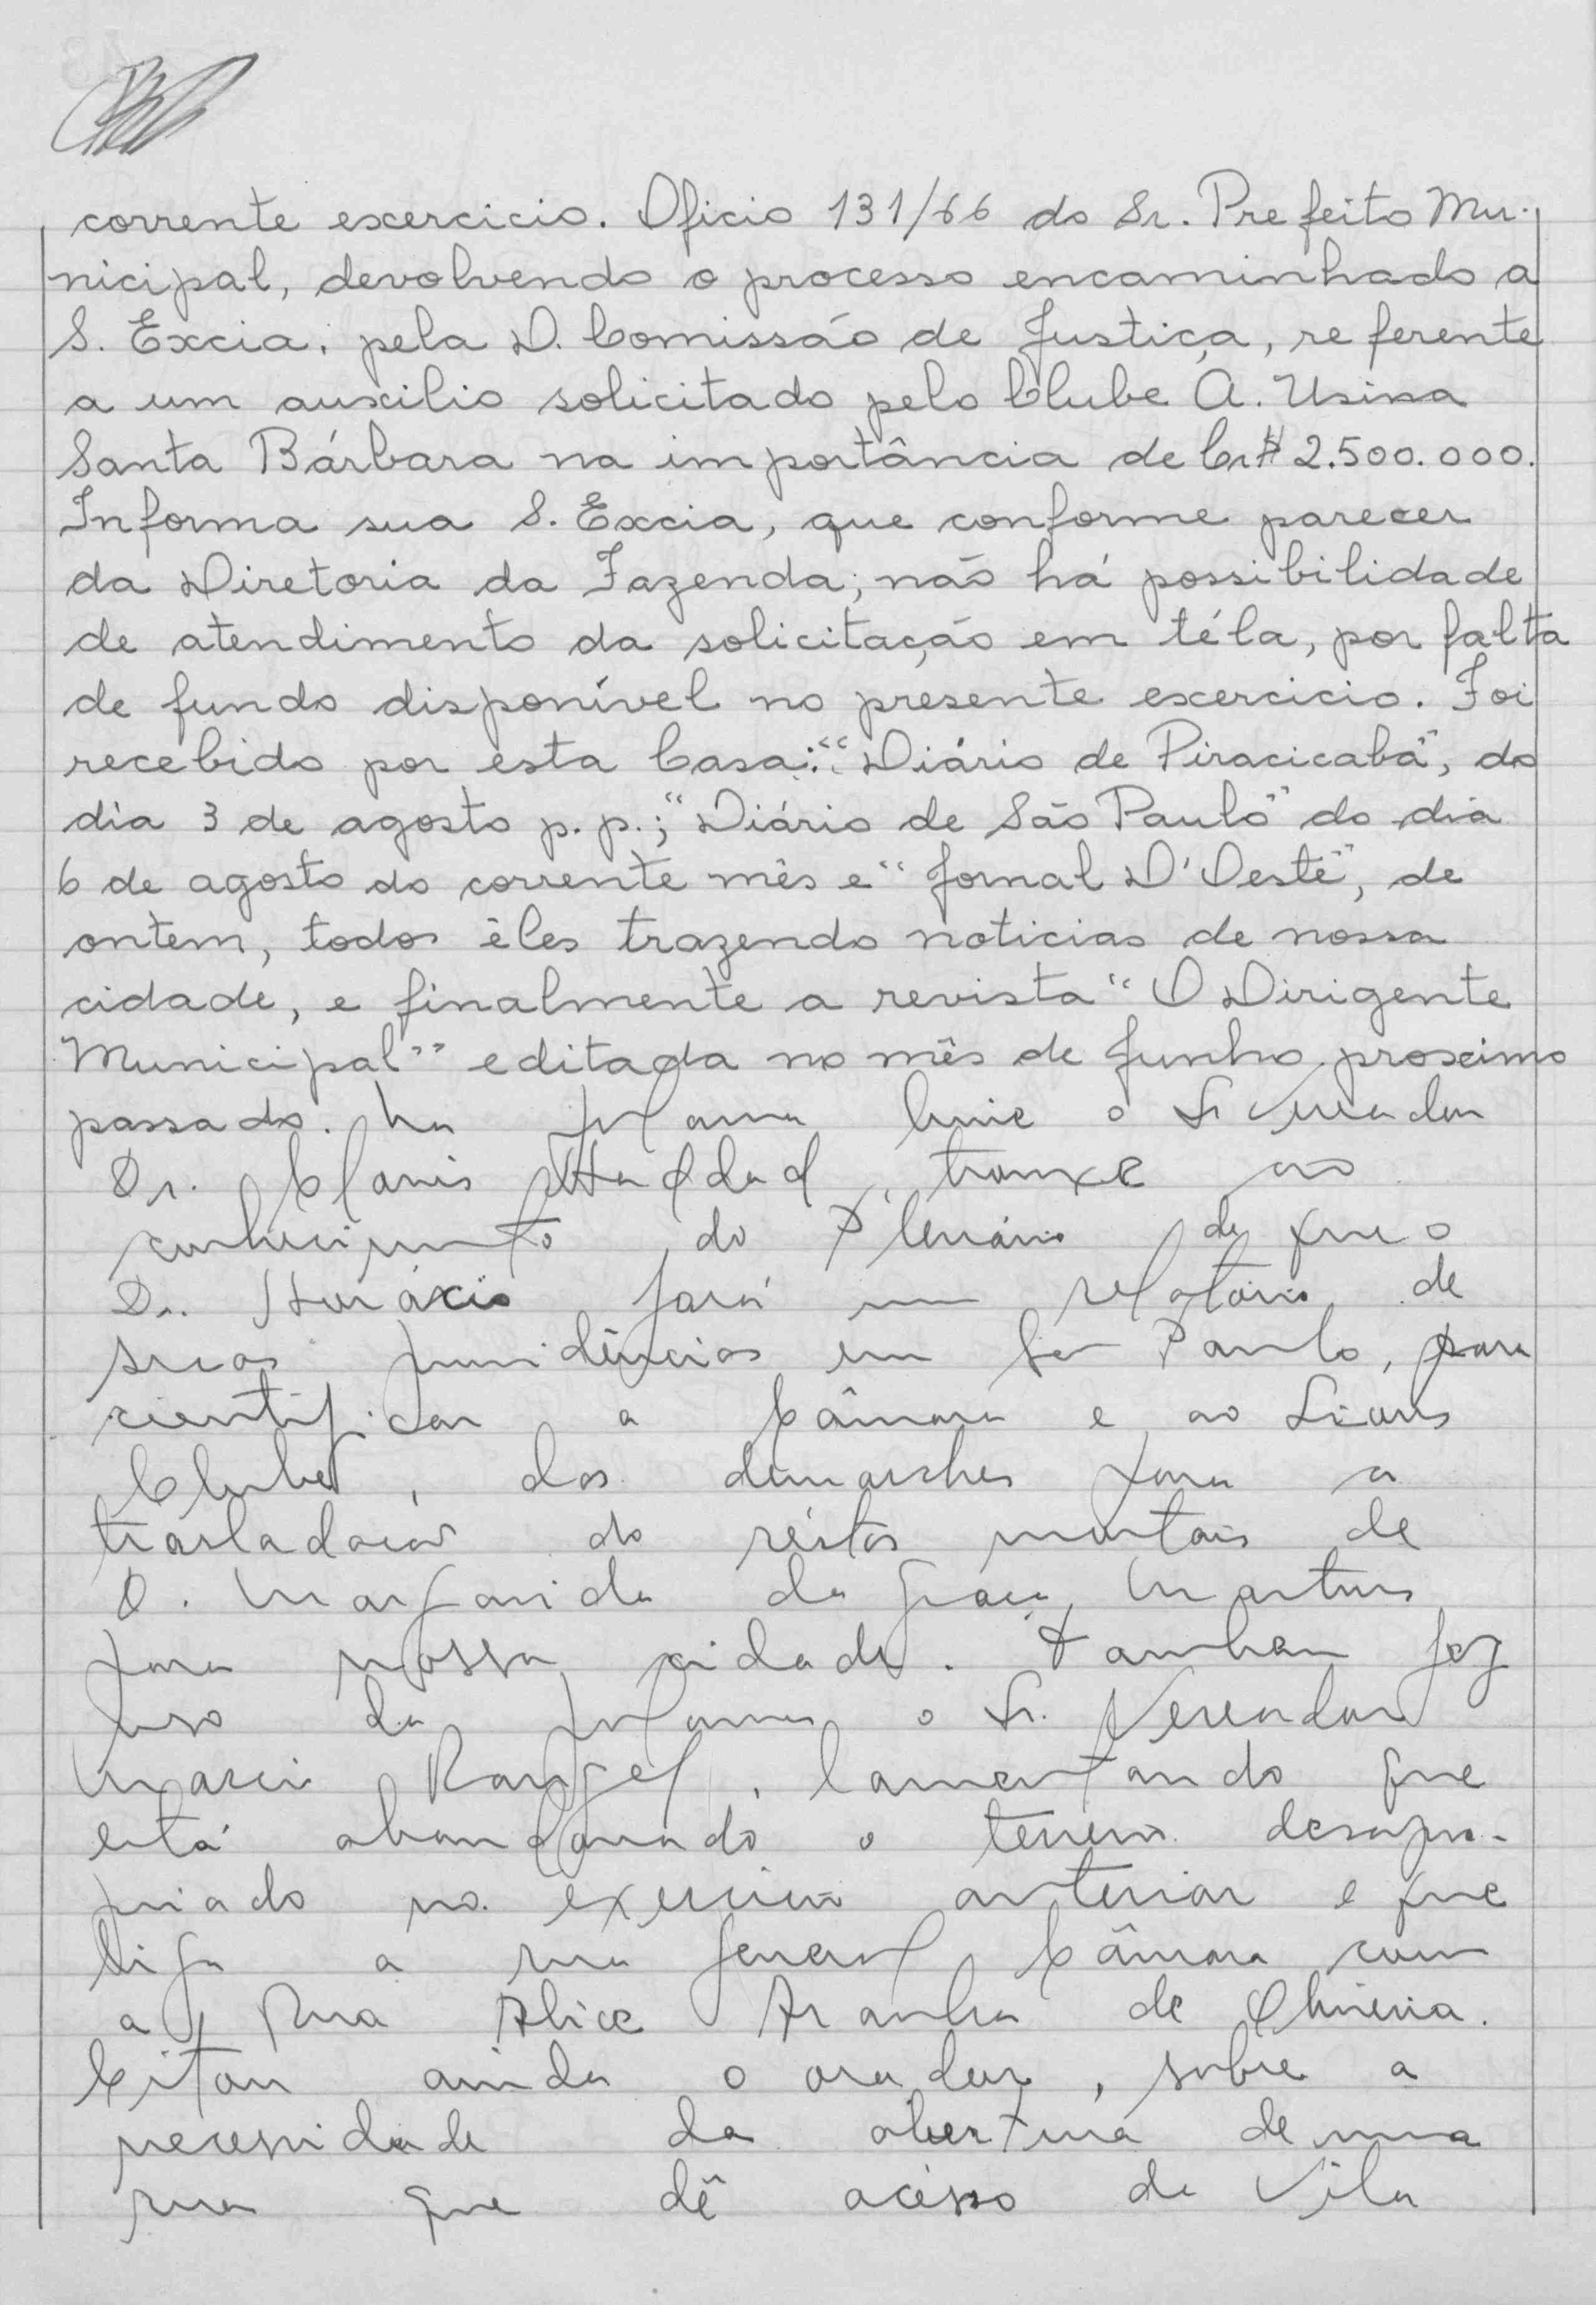 corrente exercicio. Oficio 131/66 do Sr. Prefeito Mu-
nicipal, devolvendo o processo encaminhado a
S. Excia. pela D. Comissão de Justiça, referente
a um auxilio solicitado pelo Clube A. Usina
Santa Bárbara na importância de Cr$ 2.500.000.
Informa sua S. Excia, que conforme parecer
da Diretoria da Fazenda, não há possibilidade
de atendimento da solicitação em téla, por falta
de fundo disponível no presente exercicio. Foi
recebido por esta Casa: "Diário de Piracicaba", do
dia 3 de agosto p. p.; "Diário de São Paulo" do dia
6 de agosto do corrente mês e "Jornal D'Oeste", de
ontem, todos êles trazendo noticias de nossa
cidade, e finalmente a revista "O Dirigente
Municipal" editada no mês de Junho proximo
passado. Na palavra livre o Sr Vereador
Dr. Clovis Haddad, trouxe ao
conhecimento do Plenário de que o
Dr. Horácio fará um relatório de
suas providências em São Paulo, para
cientificar a Câmara e ao Lions
Clube, das demarches para a
trasladacão do réstos mortais de
D. Margarida da Graça Martins
para nossa cidade. Tambem fez
uso da palavra o Sr. Vereador
Rangel, lamentando que
está abandonado o terreno desapro-
priado no exercicio anterior e que
liga a rua General Câmara com
a Rua Alice Aranha de Oliveira.
Citou ainda o orador, sobre a
necessidade da abertura de uma
rua que dê acésso da Vila